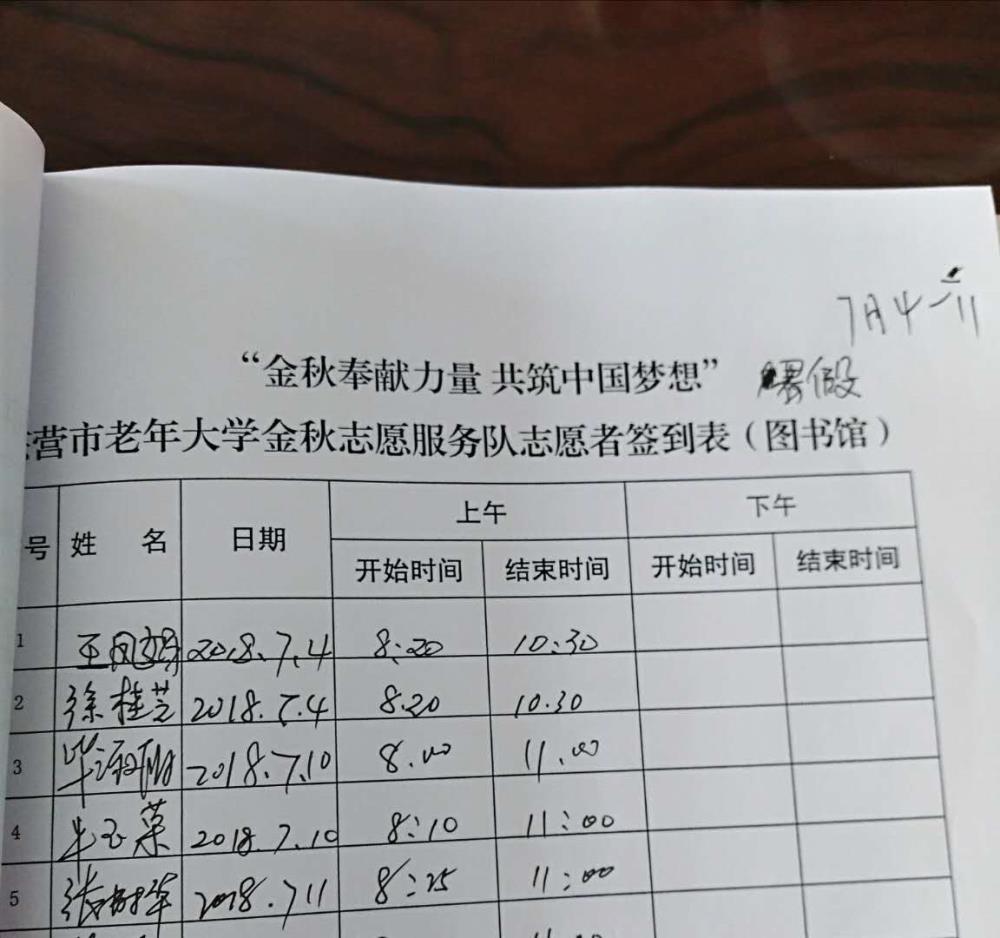 7月4—11
“金秋奉献力量 共筑中国梦想” 暑假
营市老年大学金秋志愿服务队志愿者签到表（图书馆）
号 姓 名 日期 上午 下午
开始时间 结束时间 开始时间 结束时间
1 王凤 2018.7.4 8:20 10:30
2 徐桂芝 2018.7.4 8.20 10.30
3 毕 2018.7.10 8.00 11.00
4 牛玉荣 2018.7.10 8:10 11:00
5 张树华 2018.7 11 8:25 11:00